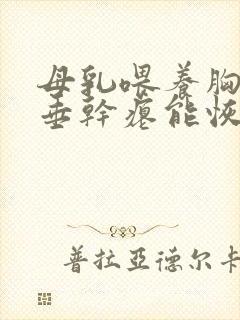 母乳喂養胸
垂幹瘪能恢
普拉亞德尔卡